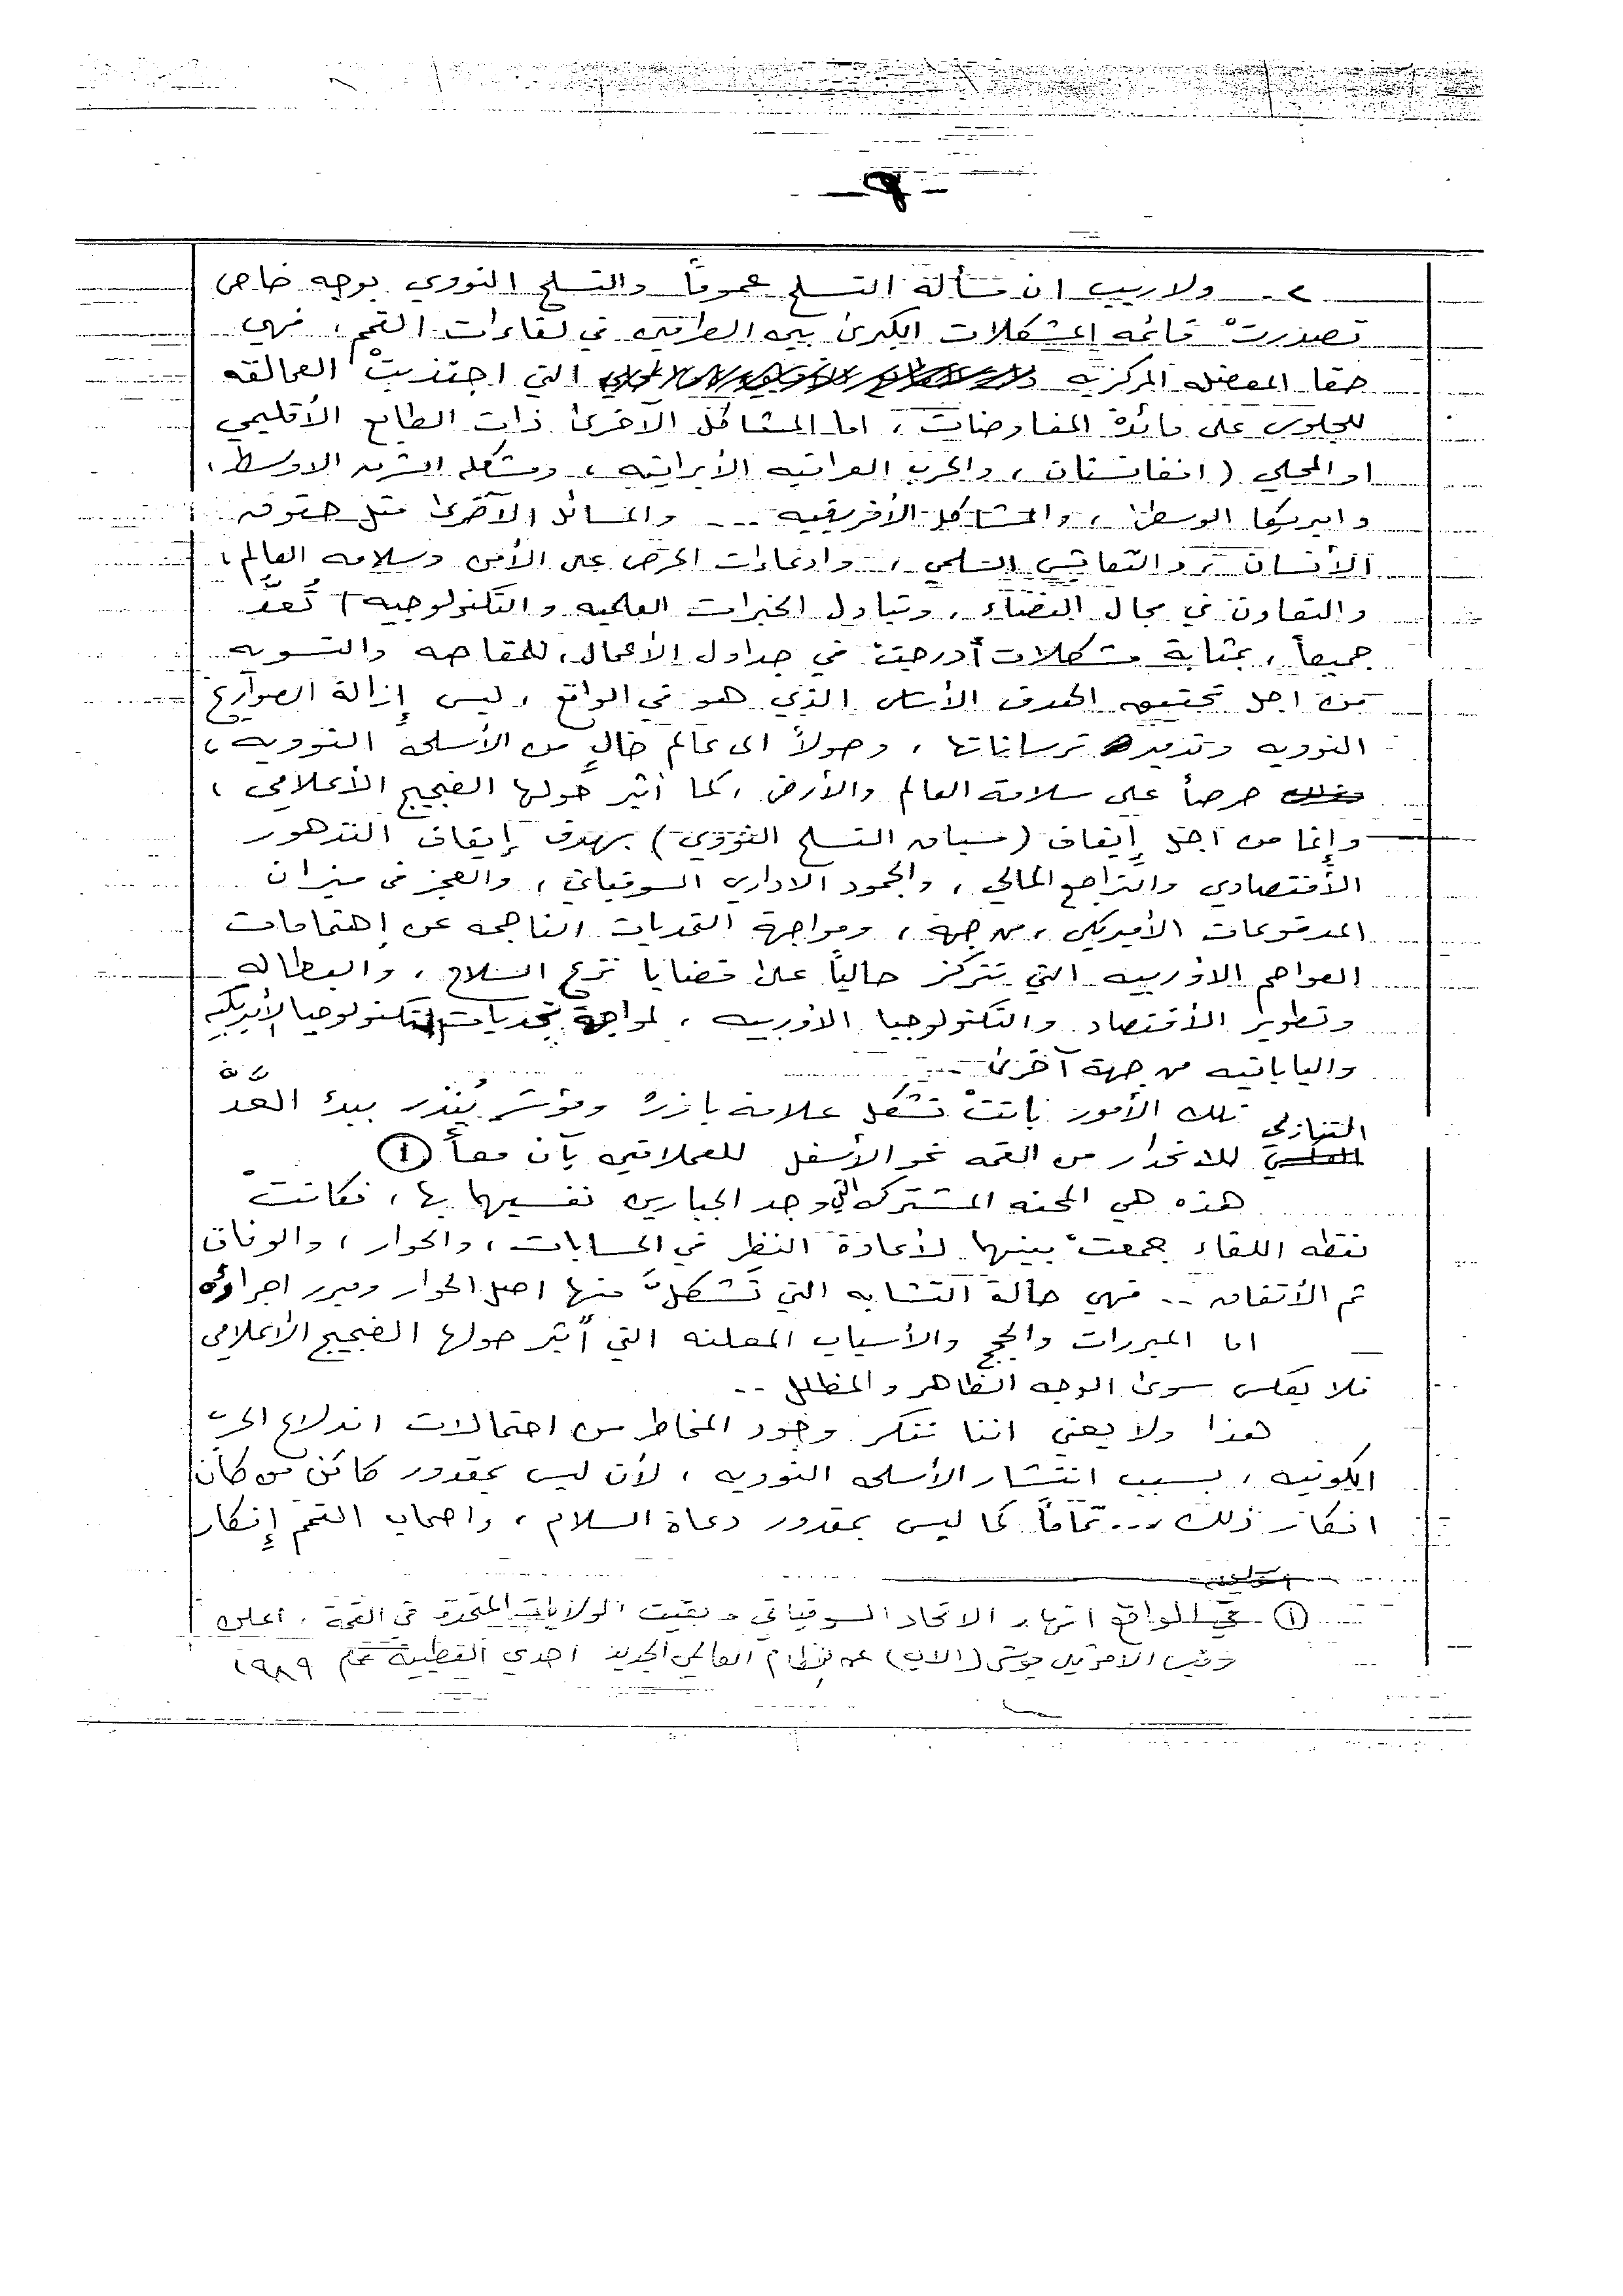 - ٩ -
٢ - ولاريب ان مسألة التسلح عموماً والتسلح النووي بوجه خاص
تصدرتْ قائمه المشكلات الكبرىٰ بين الطرفين في لقاءات القمم، فهي
حقا المعضله المركزيه التي اجتذبتْ العمالقه
للجلوس على مائدة المفاوضات، اما المشاكل الآخرىٰ ذات الطابع الأقليمي
او المحلي (افغانستان، والحرب العراقيه الأيرانيه، ومشكله الشرق الاوسط،
وامريكا الوسطىٰ، والمشاكل الأفريقيه ... والمسائل الآخرىٰ مثل حقوق
الأنسان، والتعايش السلمي، وادعاءات الحرص على الأمن وسلامه العالم،
والتعاون في مجال الفضاء، وتبادل الخبرات العلميه والتكنولوجيه) تُعدّ
جميعاً، بمثابة مشكلات أدرجت في جداول الأعمال، للمقاصه والتسويه
من اجل تحقيق الهدف الأساس الذي هو في الواقع، ليس إزالة الصواريخ
النوويه وتدمير ترساناتها، وصولاً الى عالم خالٍ من الأسلحة النوويه،
حرصاً على سلامة العالم والأرض، كما أثير حولها الضجيج الأعلامي،
وإنما من اجل إيقاف (سباق التسلح النووي) بهدف إيقاف التدهور
الأقتصادي والتراجع المالي، والجمود الاداري السوفياتي، والعجز في ميزان
المدفوعات الأميركي، من جهة، ومواجهة التحديات الناجمه عن إهتمامات
العواصم الاوربيه التي تتركز حالياً علىٰ قضايا نزع السلاح، والبطاله
وتطوير الأقتصاد والتكنولوجيا الاوربيه، لمواجهة تحديات التكنولوجيا الأمريكيه
واليابانيه من جهة آخرىٰ ..
تلك الأمور باتتْ تشكل علامة بارزة ومؤشر يُنذر ببدء العد
التنازلي للانحدار من القمه نحو الأسفل للعملاقين بآن معاً ①
هذه هي المحنه المشتركه التي وجد الجبارين نفسيهما بها، فكانتْ
نقطه اللقاء جمعتْ بينهما لأعادة النظر في الحسابات، والحوار، والوفاق
ثم الأتفاق .. فهي حالة التشابه التي تَشكلَّ منها اصل الحوار ومبرر اجراؤه
اما المبررات والحجج والأسباب المعلنه التي أُثير حولها الضجيج الأعلامي
فلا يعكس سوىٰ الوجه الظاهر والمظلل ..
هذا ولا يعني اننا ننكر وجود المخاطر من احتمالات اندلاع الحرب
الكونيه، بسبب انتشار الأسلحه النوويه، لأن ليس بمقدور كائن من كان
انكار ذلك ... تماماً كما ليس بمقدور دعاة السلام، واصحاب القمم إنكار
① - في الواقع انهار الاتحاد السوفياتي وبقيت الولايات المتحدة في القمة، اعلن
رئيس الامريكي بوش (الاب) عن نظام العالمي الجديد احدي القطبية عام ١٩٨٩